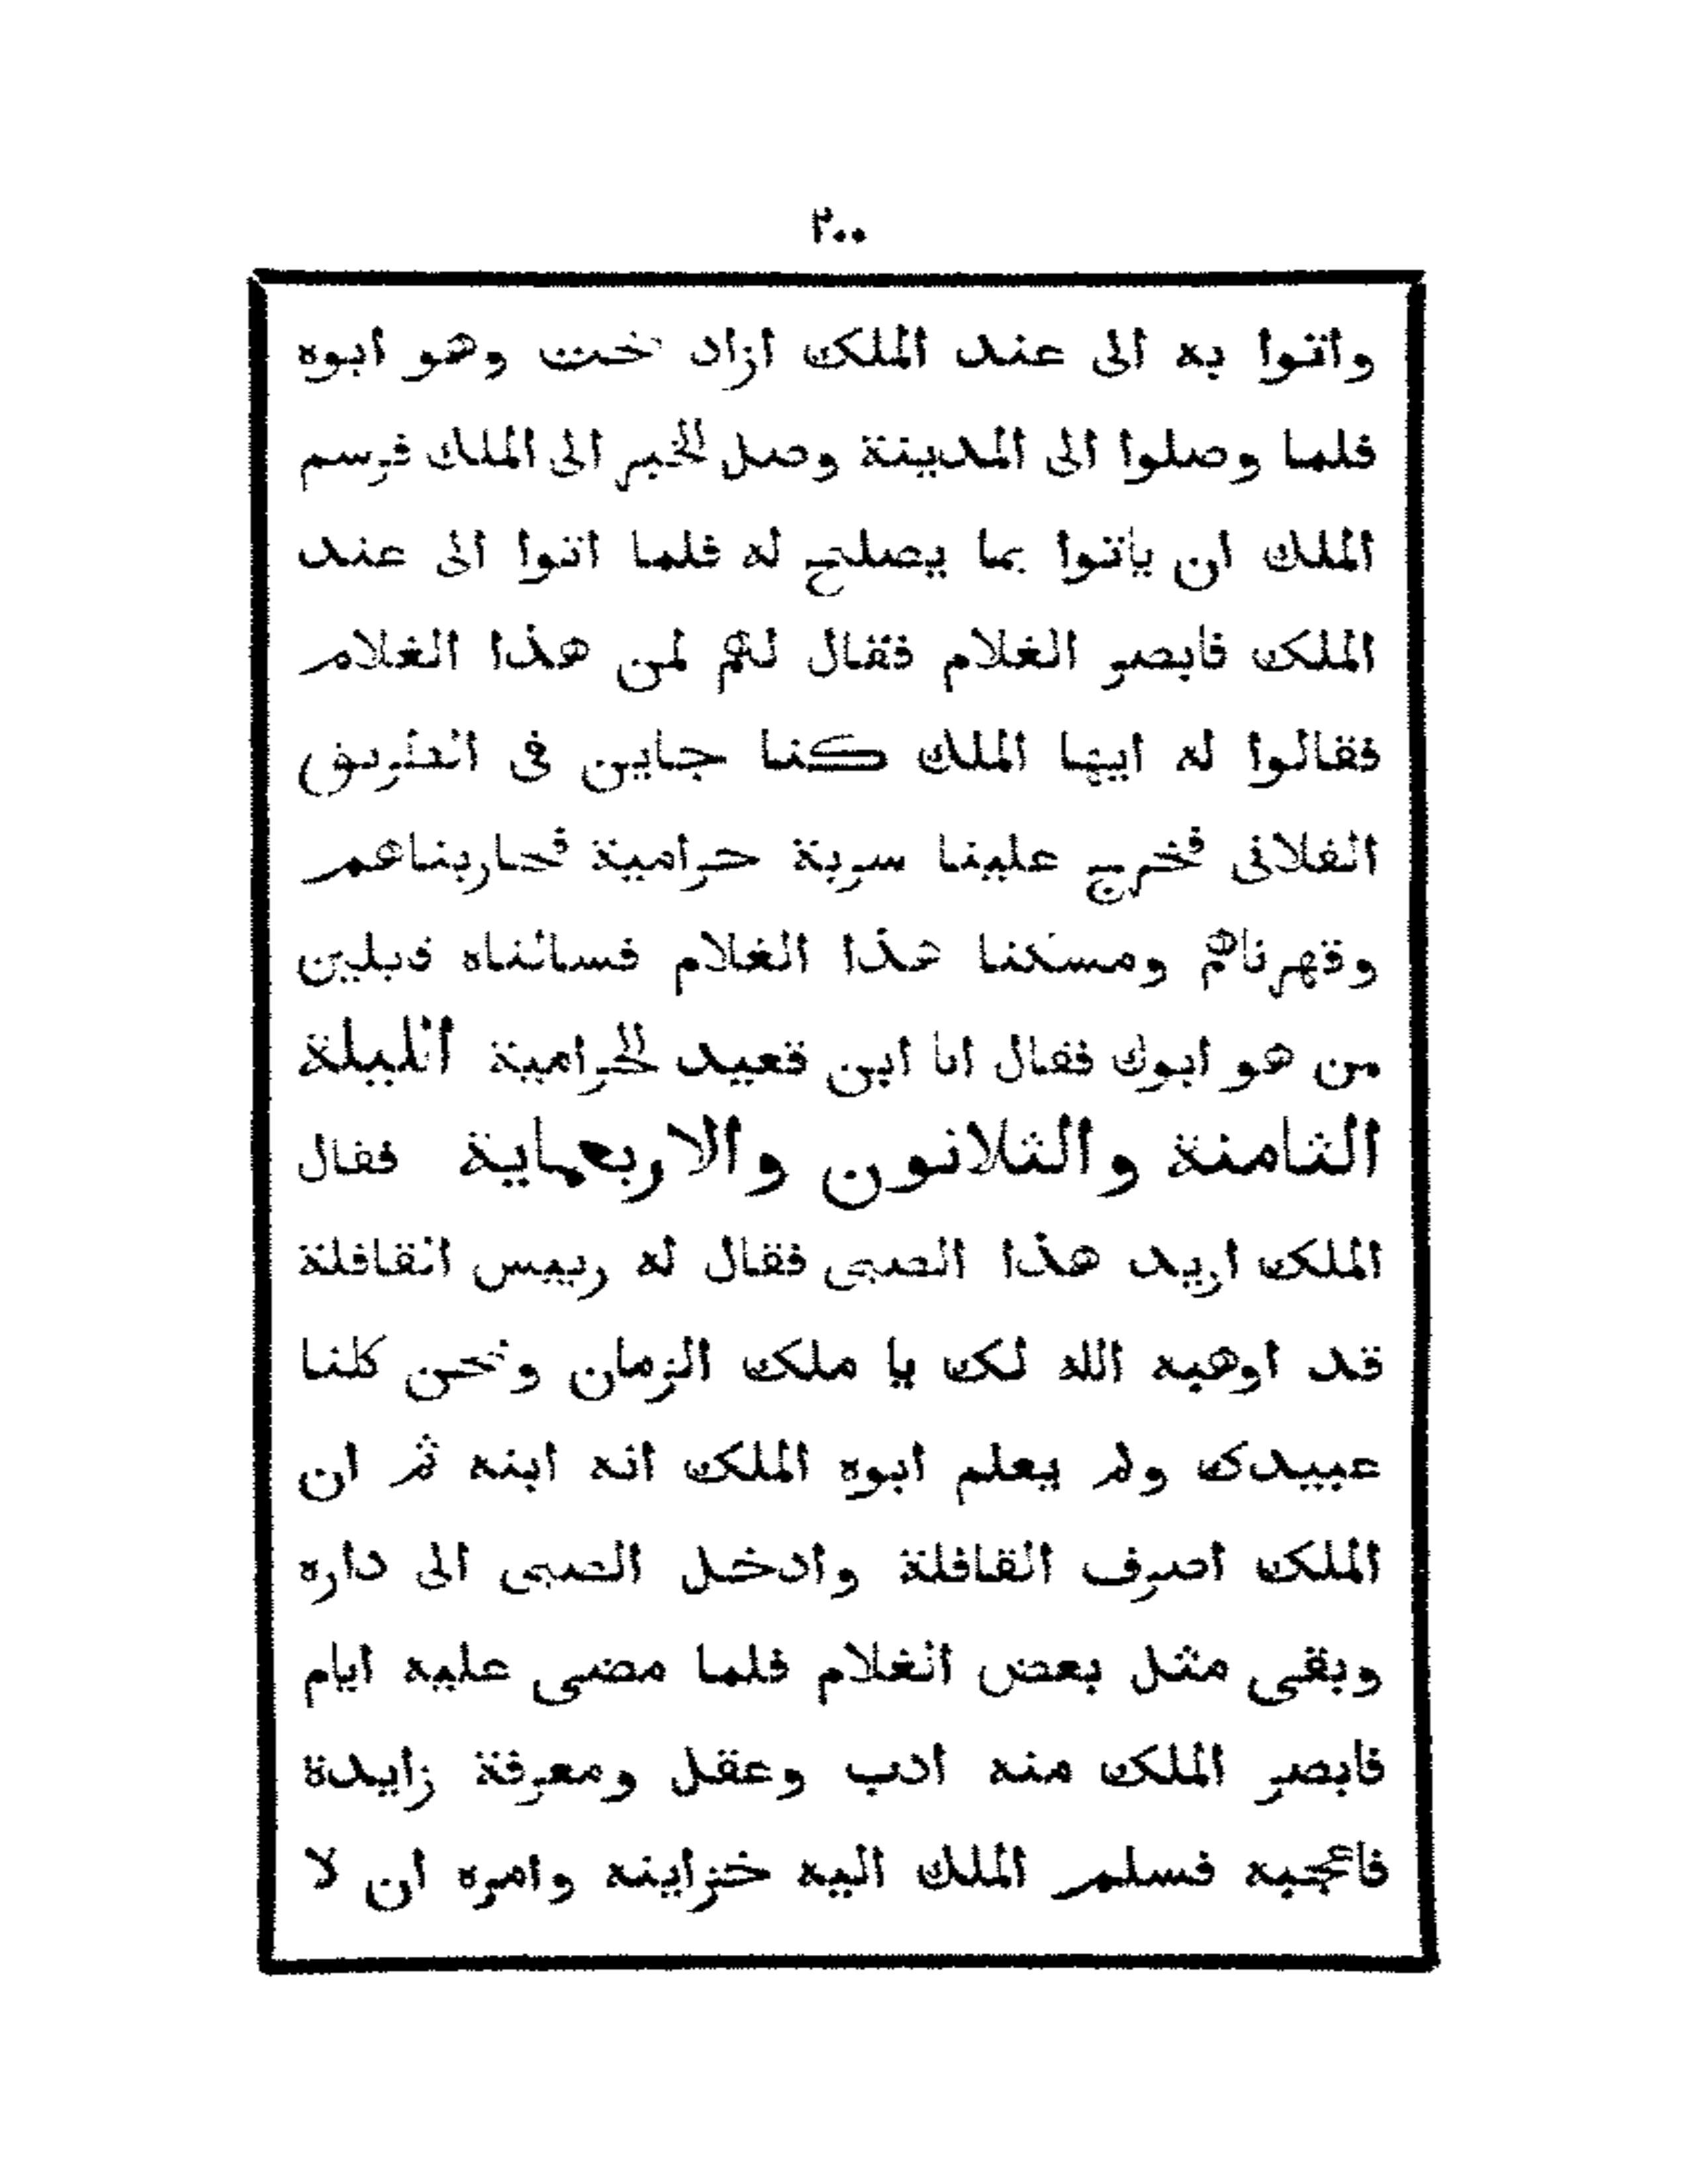 ٢٠٠
واتوا به الى عند الملك ازاد خت وهو ابوه
فلما وصلوا الى المدينة وصل الخبر الى الملك فرسم
الملك ان ياتوا بما يصلح له فلما اتوا الى عند
الملك فابصر الغلام فقال لهم لمن هذا الغلام
فقالوا له ايها الملك كنا جايين فى الطريق
الفلانى فخرج علينا سربة حرامية فحاربناهم
وقهرناهم ومسكنا هذا الغلام فسالناه قبلين
من هو ابوك فقال انا ابن قعيد الحرامية الليلة
الثامنة والثلاثون والاربعماية فقال
الملك اريد هذا الصبى فقال له رييس القافلة
قد اوهبه الله لك يا ملك الزمان ونحن كلنا
عبيدك ولم يعلم ابوه الملك انه ابنه ثم ان
الملك اصرف القافلة وادخل الصبى الى داره
وبقى مثل بعض الغلام فلما مضى عليه ايام
فابصر الملك منه ادب وعقل ومعرفة زايدة
فاعجبه فسلم الملك اليه خزاينه وامره ان لا